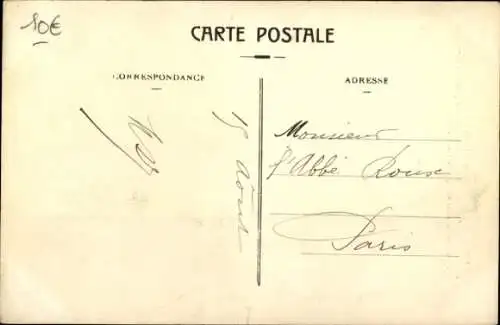 10€
CARTE POSTALE
CORRESPONDANCE
ADRESSE
15 août
Monsieur
l'Abbé Roux
Paris